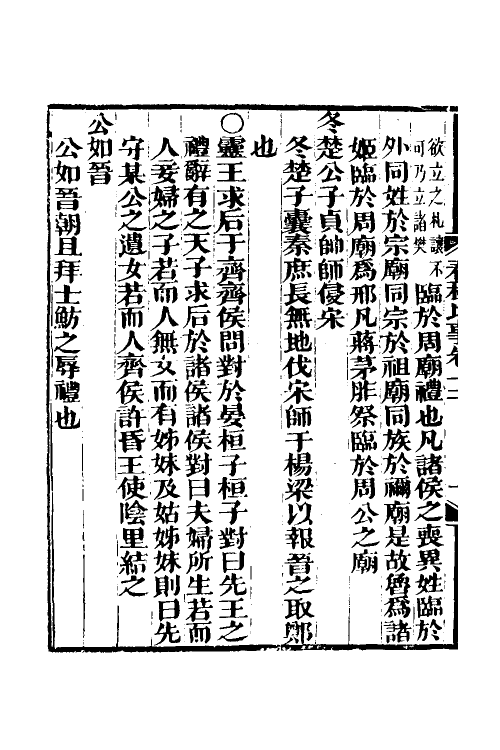 欲立之札讓不
可乃立諸樊
臨於周廟禮也凡諸侯之喪異姓臨於
外同姓於宗廟同宗於祖廟同族於禰廟是故魯爲諸
姬臨於周廟爲邢凡蔣茅胙祭臨於周公之廟
冬楚公子貞帥師侵宋
冬楚子囊秦庶長無地伐宋師于楊梁以報晉之取鄭
也
○靈王求后于齊齊侯問對於晏桓子桓子對曰先王之
禮辭有之天子求后於諸侯諸侯對曰夫婦所生若而
人妾婦之子若而人無女而有姊妹及姑姊妹則曰先
守某公之遺女若而人齊侯許昏王使陰里結之
公如晉
公如晉朝且拜士魴之辱禮也